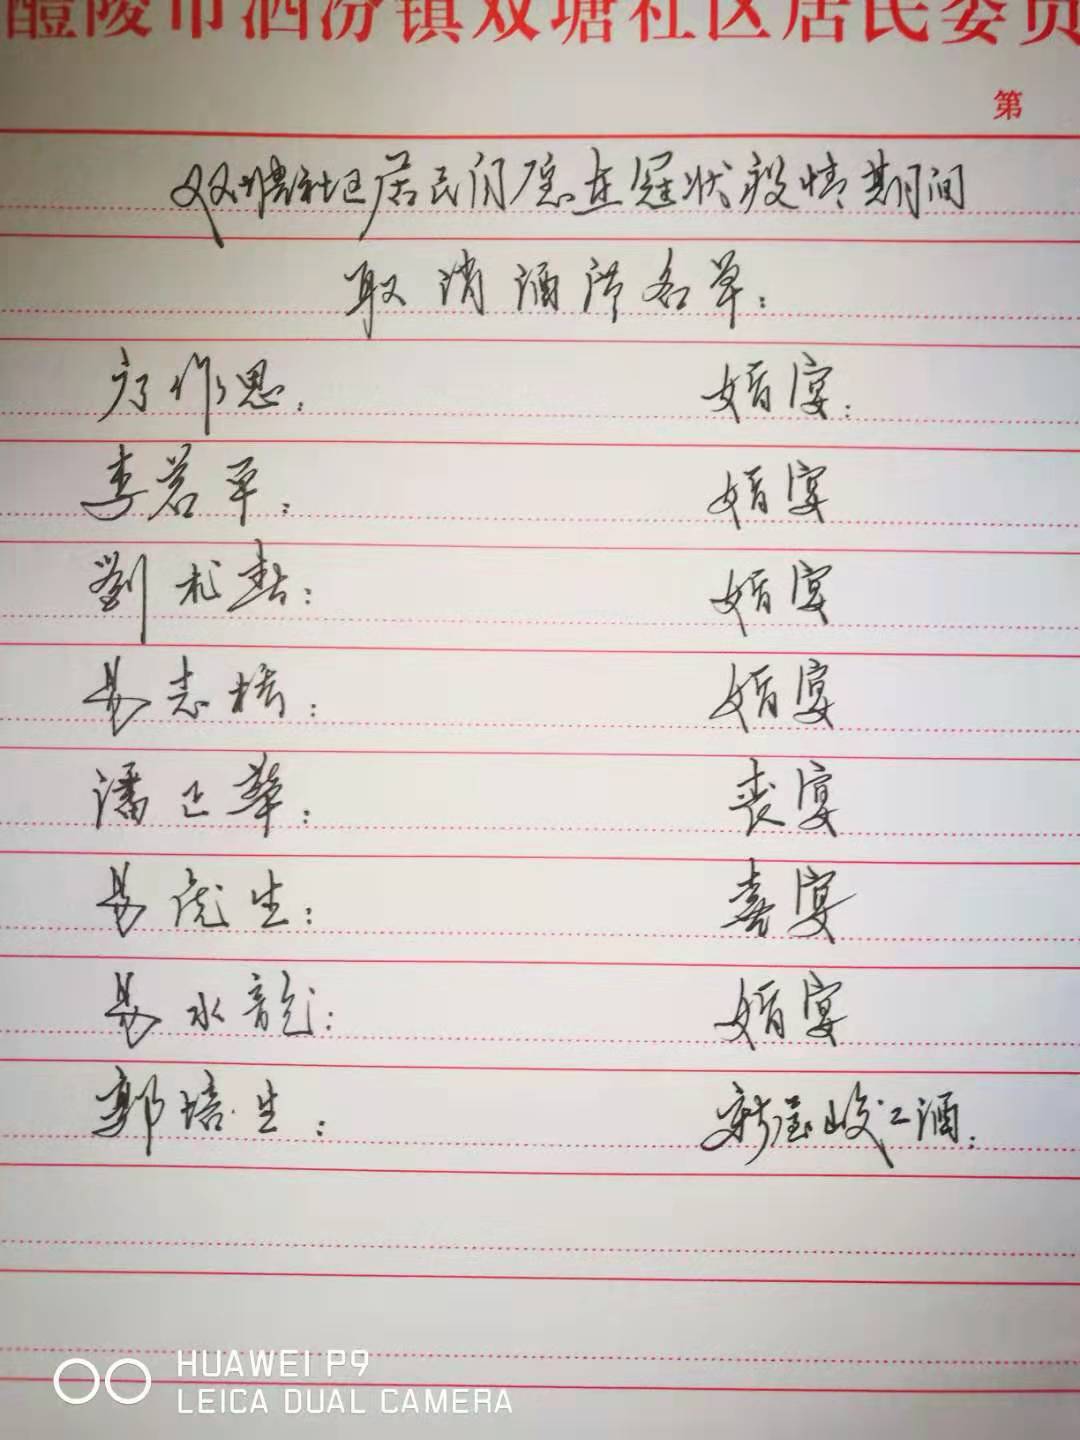 醴陵市泗汾镇双塘社区居民委员
第
双塘社区居民
在冠状疫情期间
取消酒席名单：
作思： 婚宴：
李若平： 婚宴
劉 婚宴
易志 婚宴
潘正華： 丧宴
易 生： 喜宴
易水龍： 婚宴
郭培生： 新屋竣工酒：
HUAWEI P9
LEICA DUAL CAMERA